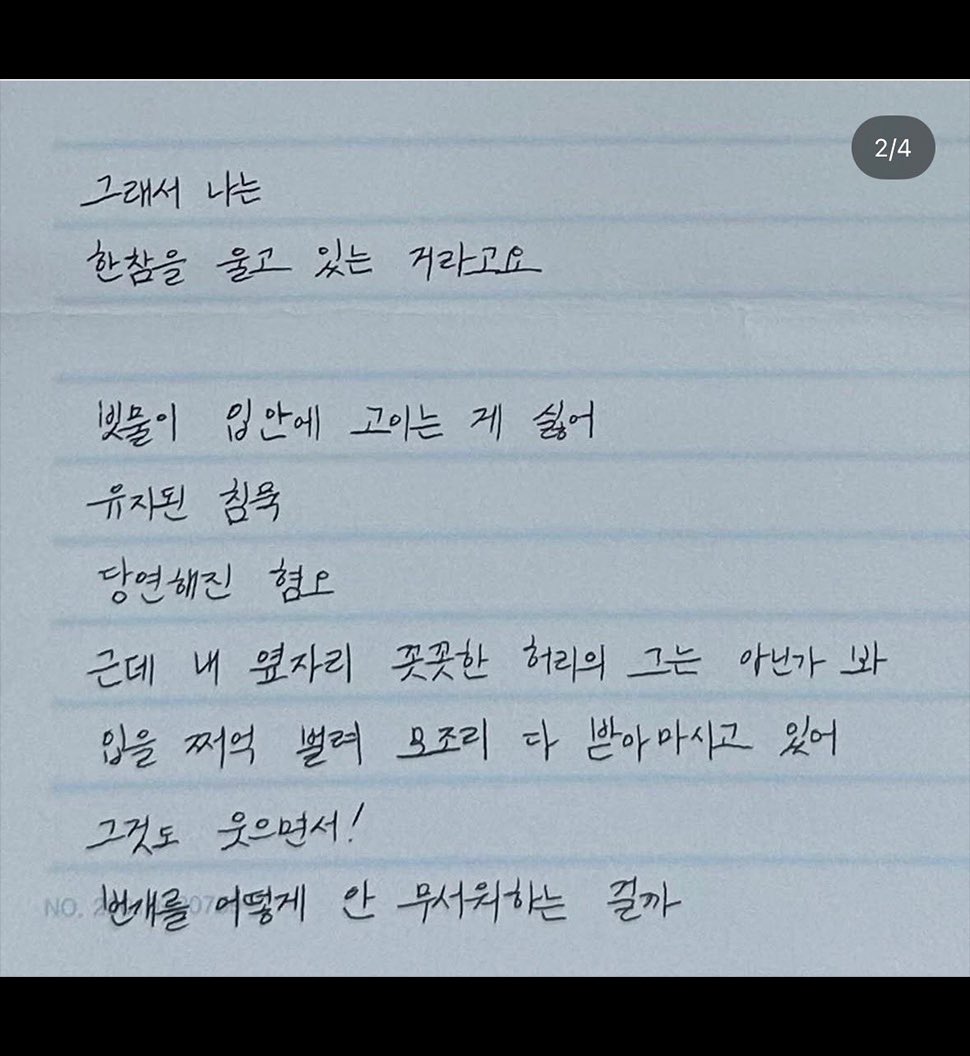 2/4
그래서 나는
한참을 울고 있는 거라고요
빗물이 입안에 고이는 게 싫어
유자된 침묵
당연해진 혐오
근데 내 옆자리 꼿꼿한 허리의 그는 아닌가 봐
입을 쩌억 벌려 모조리 다 받아마시고 있어
그것도 웃으면서!
번개를 어떻게 안 무서워하는 걸까
NO.